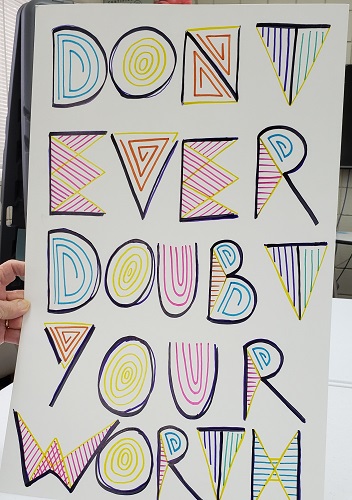 DON T
EVER
DOUBT
YOUR
WORTH